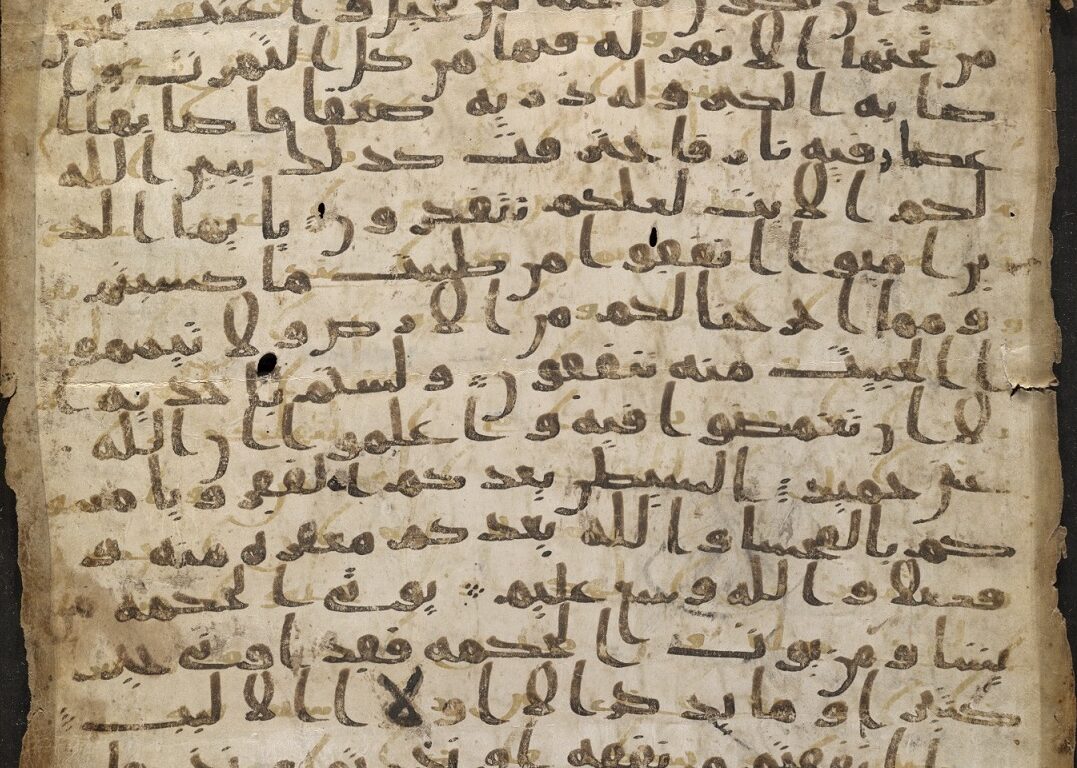 جنة من نخيل و اعنب تجري
من تحتها الانهر له فيها من كل الثمرت و ا
صابه الكبر وله ذرية ضعفا فاصابها ا
عصار فيه نار فاحترقت كذلك يبين الله
لكم الايت لعلكم تتفكرون يايها الذ
ين امنوا انفقوا من طيبت ما كسبتم
ومما اخرجنا لكم من الارض ولا تيممو
ا الخبيث منه تنفقون ولستم باخذيه ا
لا ان تغمضوا فيه واعلموا ان الله
غني حميد الشيطن يعدكم الفقر ويامر
كم بالفحشا والله يعدكم مغفرة منه و
فضلا والله وسع عليم يوتي الحكمة من
يشا ومن يوت الحكمة فقد اوتي خير
كثيرا وما يذكر الا اولا الالبب
انفقتم من نفقة او نذرتم من